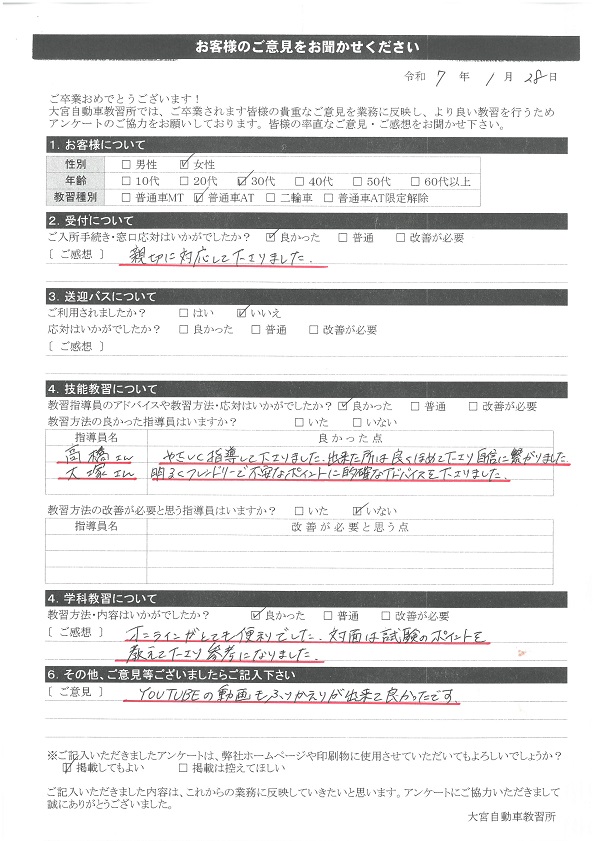 お客様のご意見をお聞かせください
令和 7 年 1 月 28 日
ご卒業おめでとうございます！
大宮自動車教習所では、ご卒業されます皆様の貴重なご意見を業務に反映し、より良い教習を行うため
アンケートのご協力をお願いしております。皆様の率直なご意見・ご感想をお聞かせ下さい。
1. お客様について
性別 □ 男性 ☑ 女性
年齢 □ 10代 □ 20代 ☑ 30代 □ 40代 □ 50代 □ 60代以上
教習種別 □ 普通車MT ☑ 普通車AT □ 二輪車 □ 普通車AT限定解除
2. 受付について
ご入所手続き・窓口応対はいかがでしたか？ ☑ 良かった □ 普通 □ 改善が必要
〔 ご感想 〕 親切に対応して下さりました.
3. 送迎バスについて
ご利用されましたか？ □ はい ☑ いいえ
応対はいかがでしたか？ □ 良かった □ 普通 □ 改善が必要
〔 ご感想 〕
4. 技能教習について
教習指導員のアドバイスや教習方法・応対はいかがでしたか？ ☑ 良かった □ 普通 □ 改善が必要
教習方法の良かった指導員はいますか？ □ いた □ いない
指導員名 良かった点
高橋さん やさしく指導して下さりました.出来た所は良くほめて下さり自信に繋がりました.
大塚さん 明るくフレンドリーで不安なポイントに的確なアドバイスを下さりました.
教習方法の改善が必要と思う指導員はいますか？ □ いた ☑ いない
指導員名 改善が必要と思う点
4. 学科教習について
教習方法・内容はいかがでしたか？ ☑ 良かった □ 普通 □ 改善が必要
〔 ご感想 〕 オンラインがとても便利でした. 対面は試験のポイントを
教えて下さり参考になりました.
6. その他、ご意見等ございましたらご記入下さい
〔 ご意見 〕 YOUTUBEの動画もふりかえりが出来て良かったです.
※ご記入いただきましたアンケートは、弊社ホームページや印刷物に使用させていただいてもよろしいでしょうか？
☑ 掲載してもよい □ 掲載は控えてほしい
ご記入いただきました内容は、これからの業務に反映していきたいと思います。アンケートにご協力いただきまして
誠にありがとうございました。
大宮自動車教習所